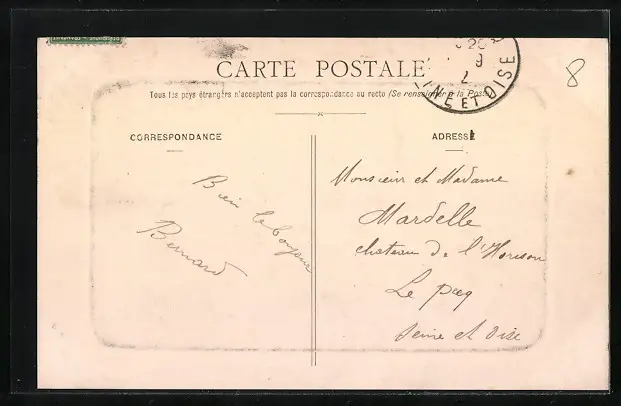 CARTE POSTALE
Tous les pays étrangers n'acceptent pas la correspondance au recto (Se renseigner à la Poste)
CORRESPONDANCE
Bien le bonjour
Bernard
ADRESSE
Monsieur et Madame
Mardelle
chateau de l'Horison
Le pecq
Seine et Oise
NE ET OISE
8